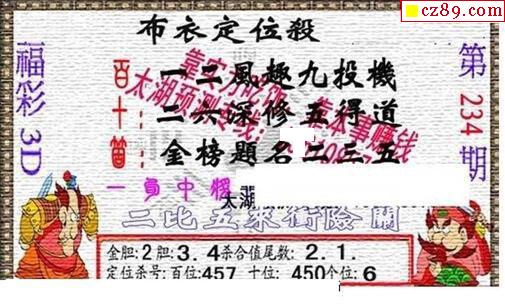 cz89.com
布衣定位殺
福彩3D
第234期
百: 一二風趣九投機
十: 二六深修五得道
金榜題名二三五
太湖预测专线:
靠本事赚钱
太湖
二比五來衝險關
金胆:2胆:3.4杀合值尾数:2.1.
定位杀号:百位:457 十位:450个位:6